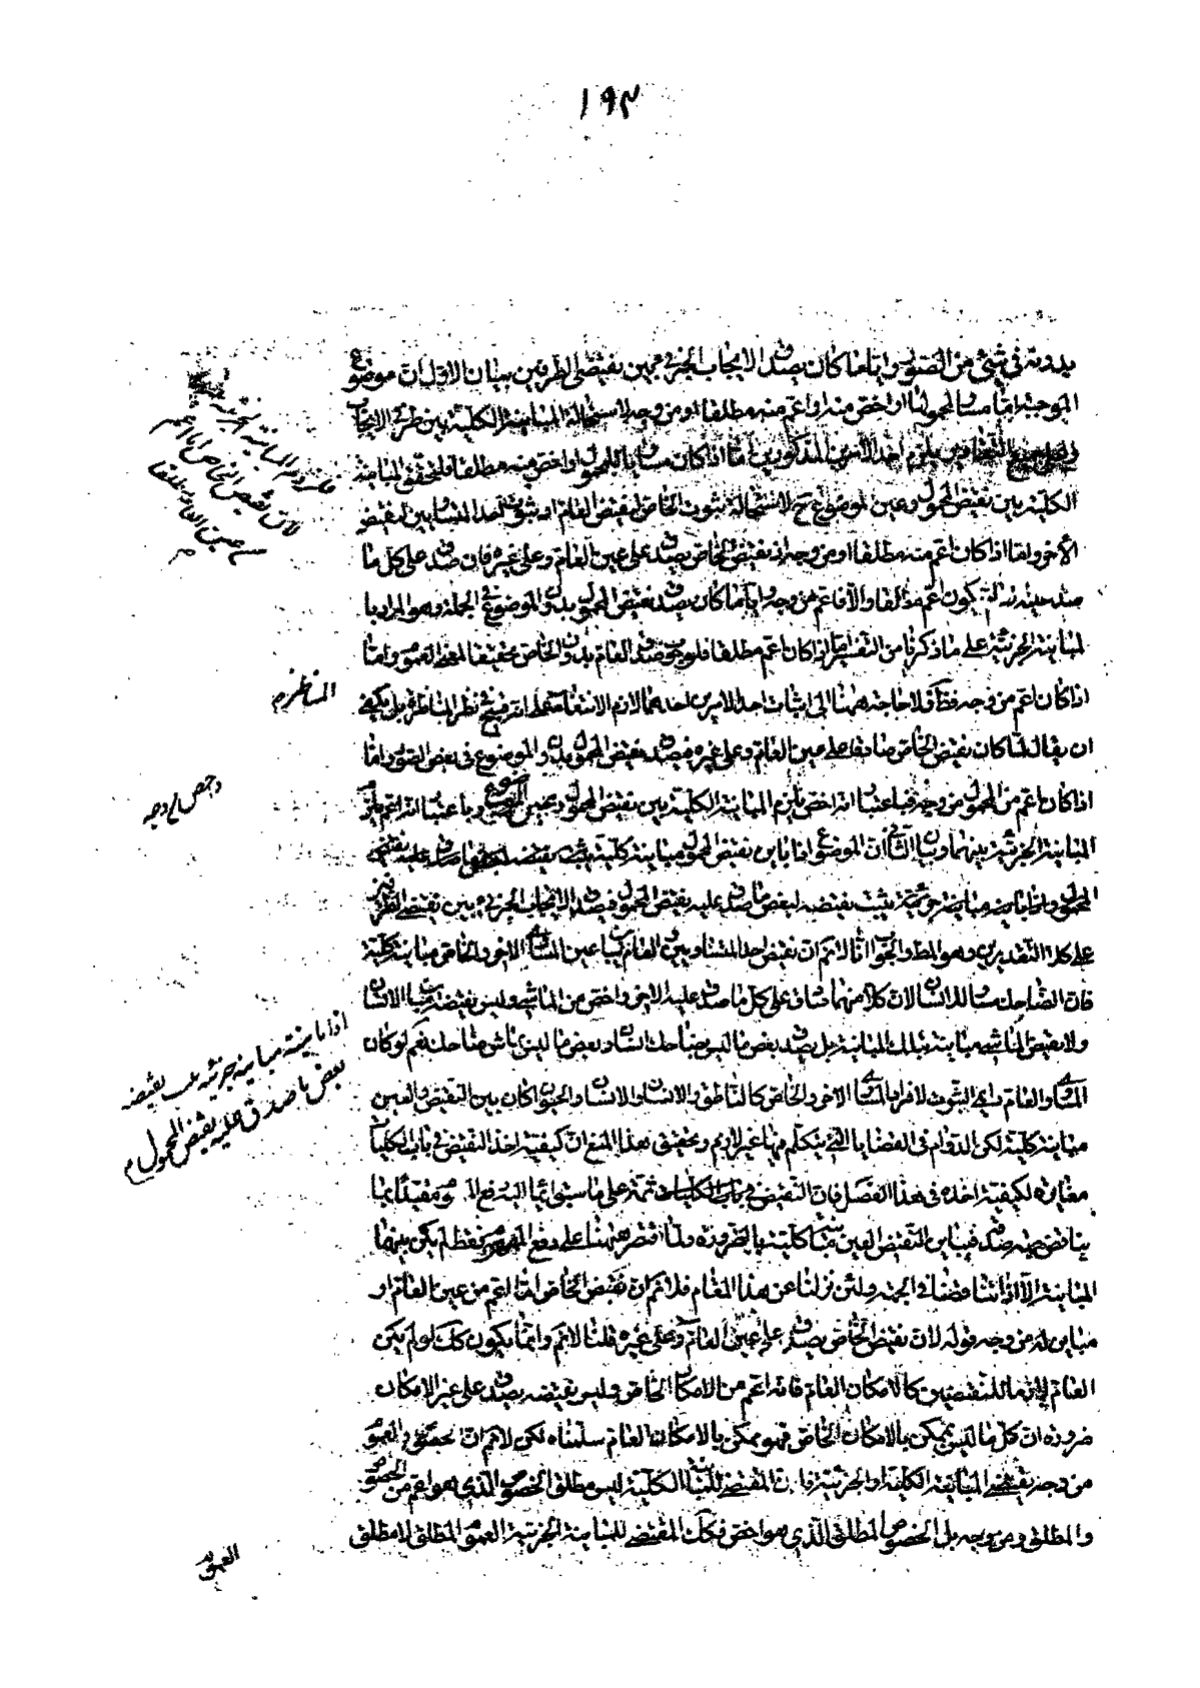 ١٩٣
بدونه فى شىء من الصور واياما كان يصدق الايجاب الجزئى بين نقيضى الطرفين بيان الاول ان موضوع
الموجبة اما مساو للمحمول او اخص منه او اعم منه مطلقا او من وجه لاستحالة المباينة الكلية بين طرفى الايجاب
يلزم احد الامرين المذكورين اما اذا كان مساويا للمحمول او اخص منه مطلقا فلتحقق المباينة
الكلية بين نقيض المحمول وعين الموضوع ح لاستحالة ثبوت الخاص لنقيض العام او ثبوت احد المتساويين لنقيض
الآخر واما اذا كان اعم منه مطلقا او من وجه اذ نقيض الخاص يصدق على عين العام وعلى غيره فان صدق على كل ما
صدق عينه يكون اعم مطلقا والا فاعم من وجه واياما كان يصدق نقيض المحمول بدون الموضوع فى الجملة وهو المراد با
لمباينة الجزئية على ما ذكرنا من التفسير اما اذا كان اعم مطلقا فلوجوب صدق العام بدون الخاص تحقيقا لمعنى العموم واما
اذا كان اعم من وجه فظ فلا حاجة ههنا الى اثبات احد الامرين احدهما لازم الانتفاء على انه قبيح فى نظر المناظرة بل يكفى
ان يقال لما كان نقيض الخاص صادقا على عين العام وعلى غيره فيصدق نقيض المحمول بدون الموضوع فى بعض الصور اما
اذا كان اعم من المحمول من وجه فباعتبار انه اخص يلزم المباينة الكلية بين نقيض المحمول وعين الموضوع وباعتبار انه اعم يلزم
المباينة الجزئية بينهما وبيان الثانى ان الموضوع اذا باين نقيض المحمول مباينة كلية يثبت نقيضه لكل ما صدق عليه نقيض
المحمول واذا باينه مباينة جزئية يثبت نقيضه لبعض ما صدق عليه نقيض المحمول فيصدق الايجاب الجزئى بين نقيضى الطرفين
على كلا التقديرين وهو المط والجواب انا لا نم ان نقيض احد المتساويين او العام يباين عين المساوى الآخر والخاص مباينة كلية
فان الضاحك مساو للانسان لان كلا منهما صادق على كل ما صدق عليه الآخر واخص من الماشى وليس نقيضه مباينا للانسان
ولا نقيض الماشى مباينة بتلك المباينة بل يصدق بعض ما ليس بضاحك انسان وبعض ما ليس بماش ضاحك نعم لو كان
المساوى والعام دايمى الثبوت لافراد المساوى الآخر والخاص كالناطق والانسان او الانسان والحيوان كان بين النقيض والعين
مباينة كلية لكن الدوام فى القضايا التى يتكلم فيها غير لازم وتحقيق هذا المنع ان كيفية اخذ النقيض فى باب الكليات
مغايرة لكيفية اخذه فى هذا الفصل فان النقيض فى باب الكليات ثمة على ما سبق ايماء اليه رفع المفهوم مقيدا بما
يناقض جهة صدقه فيباين النقيض العين مباينة كلية بالضرورة ولما اقتصر ههنا على دفع المفهوم فقط لم يكن بينهما
المباينة الا اذا تناقضتا فى الجهة ولئن نزلنا عن هذا المقام فلا نم ان نقيض الخاص اما اعم من عين العام او
مباين له من وجه قوله لان نقيض الخاص يصدق على عين العام وعلى غيره قلنا لا نم وانما يكون كك لو لم يكن
العام لازما للنقيضين كالامكان العام فانه اعم من الامكان الخاص وليس نقيضه يصدق على غير الامكان
ضرورة ان كل ما ليس بممكن بالامكان الخاص فهو ممكن بالامكان العام سلمناه لكن لا نم ان الخصوص والعموم
من وجه يقتضى المباينة الكلية او الجزئية فان المقتضى للمباينة الكلية ليس مطلق الخصوص الذى هو اعم من الخصوص
والمطلق ومن وجه بل الخصوص المطلق الذى هو اخص فكك المقتضى للمباينة الجزئية العموم المطلق لا مطلق
العموم
لان نقيض الخاص اما اعم
من عين العام مطلقا
المناظرة م
اخص من وجه
اذا باينه مباينة جزئية يثبت نقيضه
لبعض ما صدق عليه نقيض المحمول م